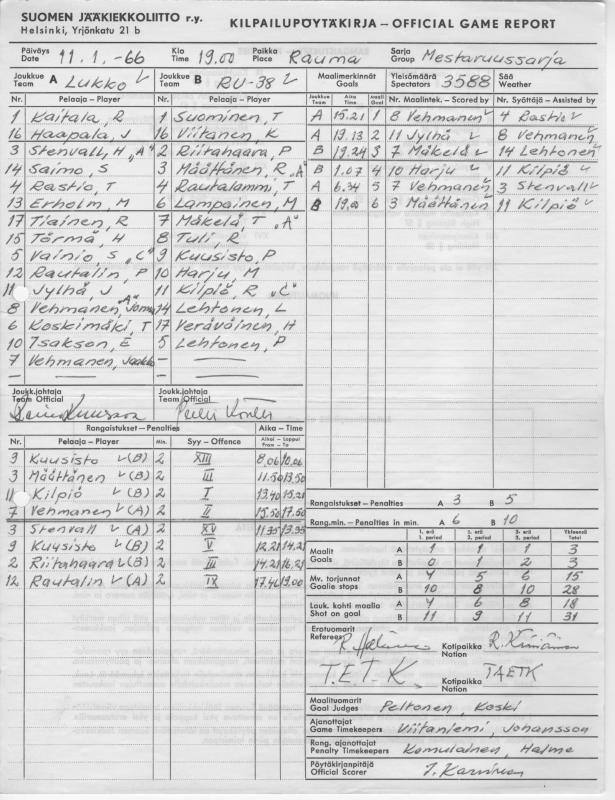 SUOMEN JÄÄKIEKKOLIITTO r.y.
Helsinki, Yrjönkatu 21 b
KILPAILUPÖYTÄKIRJA – OFFICIAL GAME REPORT
Päiväys Date 11.1.-66 Klo Time 19.00 Paikka Place Rauma Sarja Group Mestaruussarja
Joukkue Team A Lukko Joukkue Team B RU-38 Maalimerkinnät Goals Yleisömäärä Spectators 3588 Sää Weather
Nr. Pelaaja – Player Nr. Pelaaja – Player Joukkue Team Aika Time Maali Goal Nr. Maalintek. – Scored by Nr. Syöttäjä – Assisted by
1 Kaitala, R 1 Suominen, T A 15.21 1 8 Vehmanen 4 Rastio
16 Haapala, J 16 Viitanen, K A 13.13 2 11 Jylhä 8 Vehmanen
3 Stenvall, H "A" 2 Riitahaara, P B 19.24 3 7 Mäkelä 14 Lehtonen
14 Saimo, S 3 Määttänen, R "A" B 1.07 4 10 Harju 11 Kilpiö
4 Rastio, T 4 Rautalammi, T A 6.34 5 7 Vehmanen 3 Stenvall
13 Erholm, M 6 Lampainen, M B 19.00 6 3 Määttänen 11 Kilpiö
17 Tiainen, R 7 Mäkelä, T "A"
15 Törmä, H 8 Tuli, R
5 Vainio, S "C" 9 Kuusisto, P
12 Rautalin, P 10 Harju, M
11 Jylhä, J 11 Kilpiö, R "C"
8 Vehmanen, "A" Jorma 14 Lehtonen, L
6 Koskimäki, T 17 Veräväinen, H
10 Isakson, E 5 Lehtonen, P
7 Vehmanen, Jaakko –
– –
Joukk.johtaja Team Official Joukk.johtaja Team Official
Rangaistukset – Penalties Aika – Time
Nr. Pelaaja – Player Min. Syy – Offence Alkoi – Loppui From – To
9 Kuusisto (B) 2 XIII 8.06 10.06
3 Määttänen (B) 2 III 11.50 13.50
11 Kilpiö (B) 2 I 13.40 15.21
7 Vehmanen (A) 2 II 15.50 17.50
3 Stenvall (A) 2 XV 11.35 13.35
9 Kuusisto (B) 2 V 12.21 14.21
2 Riitahaara (B) 2 III 14.21 16.21
12 Rautalin (A) 2 IX 17.46 19.00
Rangaistukset – Penalties A 3 B 5
Rang.min. – Penalties in min. A 6 B 10
1. erä 1. period 2. erä 2. period 3. erä 3. period Yhteensä Total
Maalit Goals A 1 1 1 3
B 0 1 2 3
Mv. torjunnat Goalie stops A 4 5 6 15
B 10 8 10 28
Lauk. kohti maalia Shot on goal A 4 6 8 18
B 11 9 11 31
Erotuomarit Referees Kotipaikka Nation
T.E.T.K. Kotipaikka Nation TAETK
Maalituomarit Goal Judges Peltonen, Koski
Ajanottajat Game Timekeepers Viitaniemi, Johansson
Rang. ajanottajat Penalty Timekeepers Komulainen, Halme
Pöytäkirjanpitäjä Official Scorer